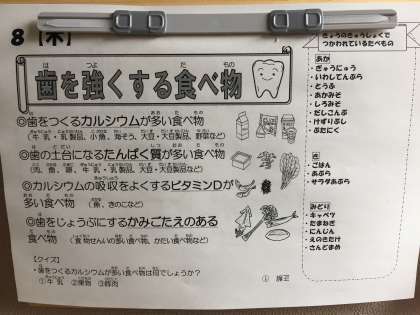 8【木】
歯を強くする食べ物
◎歯をつくるカルシウムが多い食べ物
(牛乳・乳製品、小魚、海そう、大豆・大豆製品、野菜など)
◎歯の土台になるたんぱく質が多い食べ物
(肉、魚、卵、乳・乳製品、大豆・大豆製品など)
◎カルシウムの吸収をよくするビタミンDが
多い食べ物 (魚、きのこなど)
◎歯をじょうぶにするかみごたえのある
食べ物 (食物せんいの多い食べ物、かたい食べ物など)
【クイズ】
・歯をつくるカルシウムが多い食べ物は何でしょうか?
①牛乳 ②果物 ③豚肉
きょうのきゅうしょくで
つかわれているたべもの
あか
・ぎゅうにゅう
・いわしてんぷら
・とうふ
・あかみそ
・しろみそ
・だしこんぶ
・けずりぶし
・ぶたにく
き
・ごはん
・あぶら
・サラダあぶら
みどり
・キャベツ
・たまねぎ
・にんじん
・えのきたけ
・さんどまめ